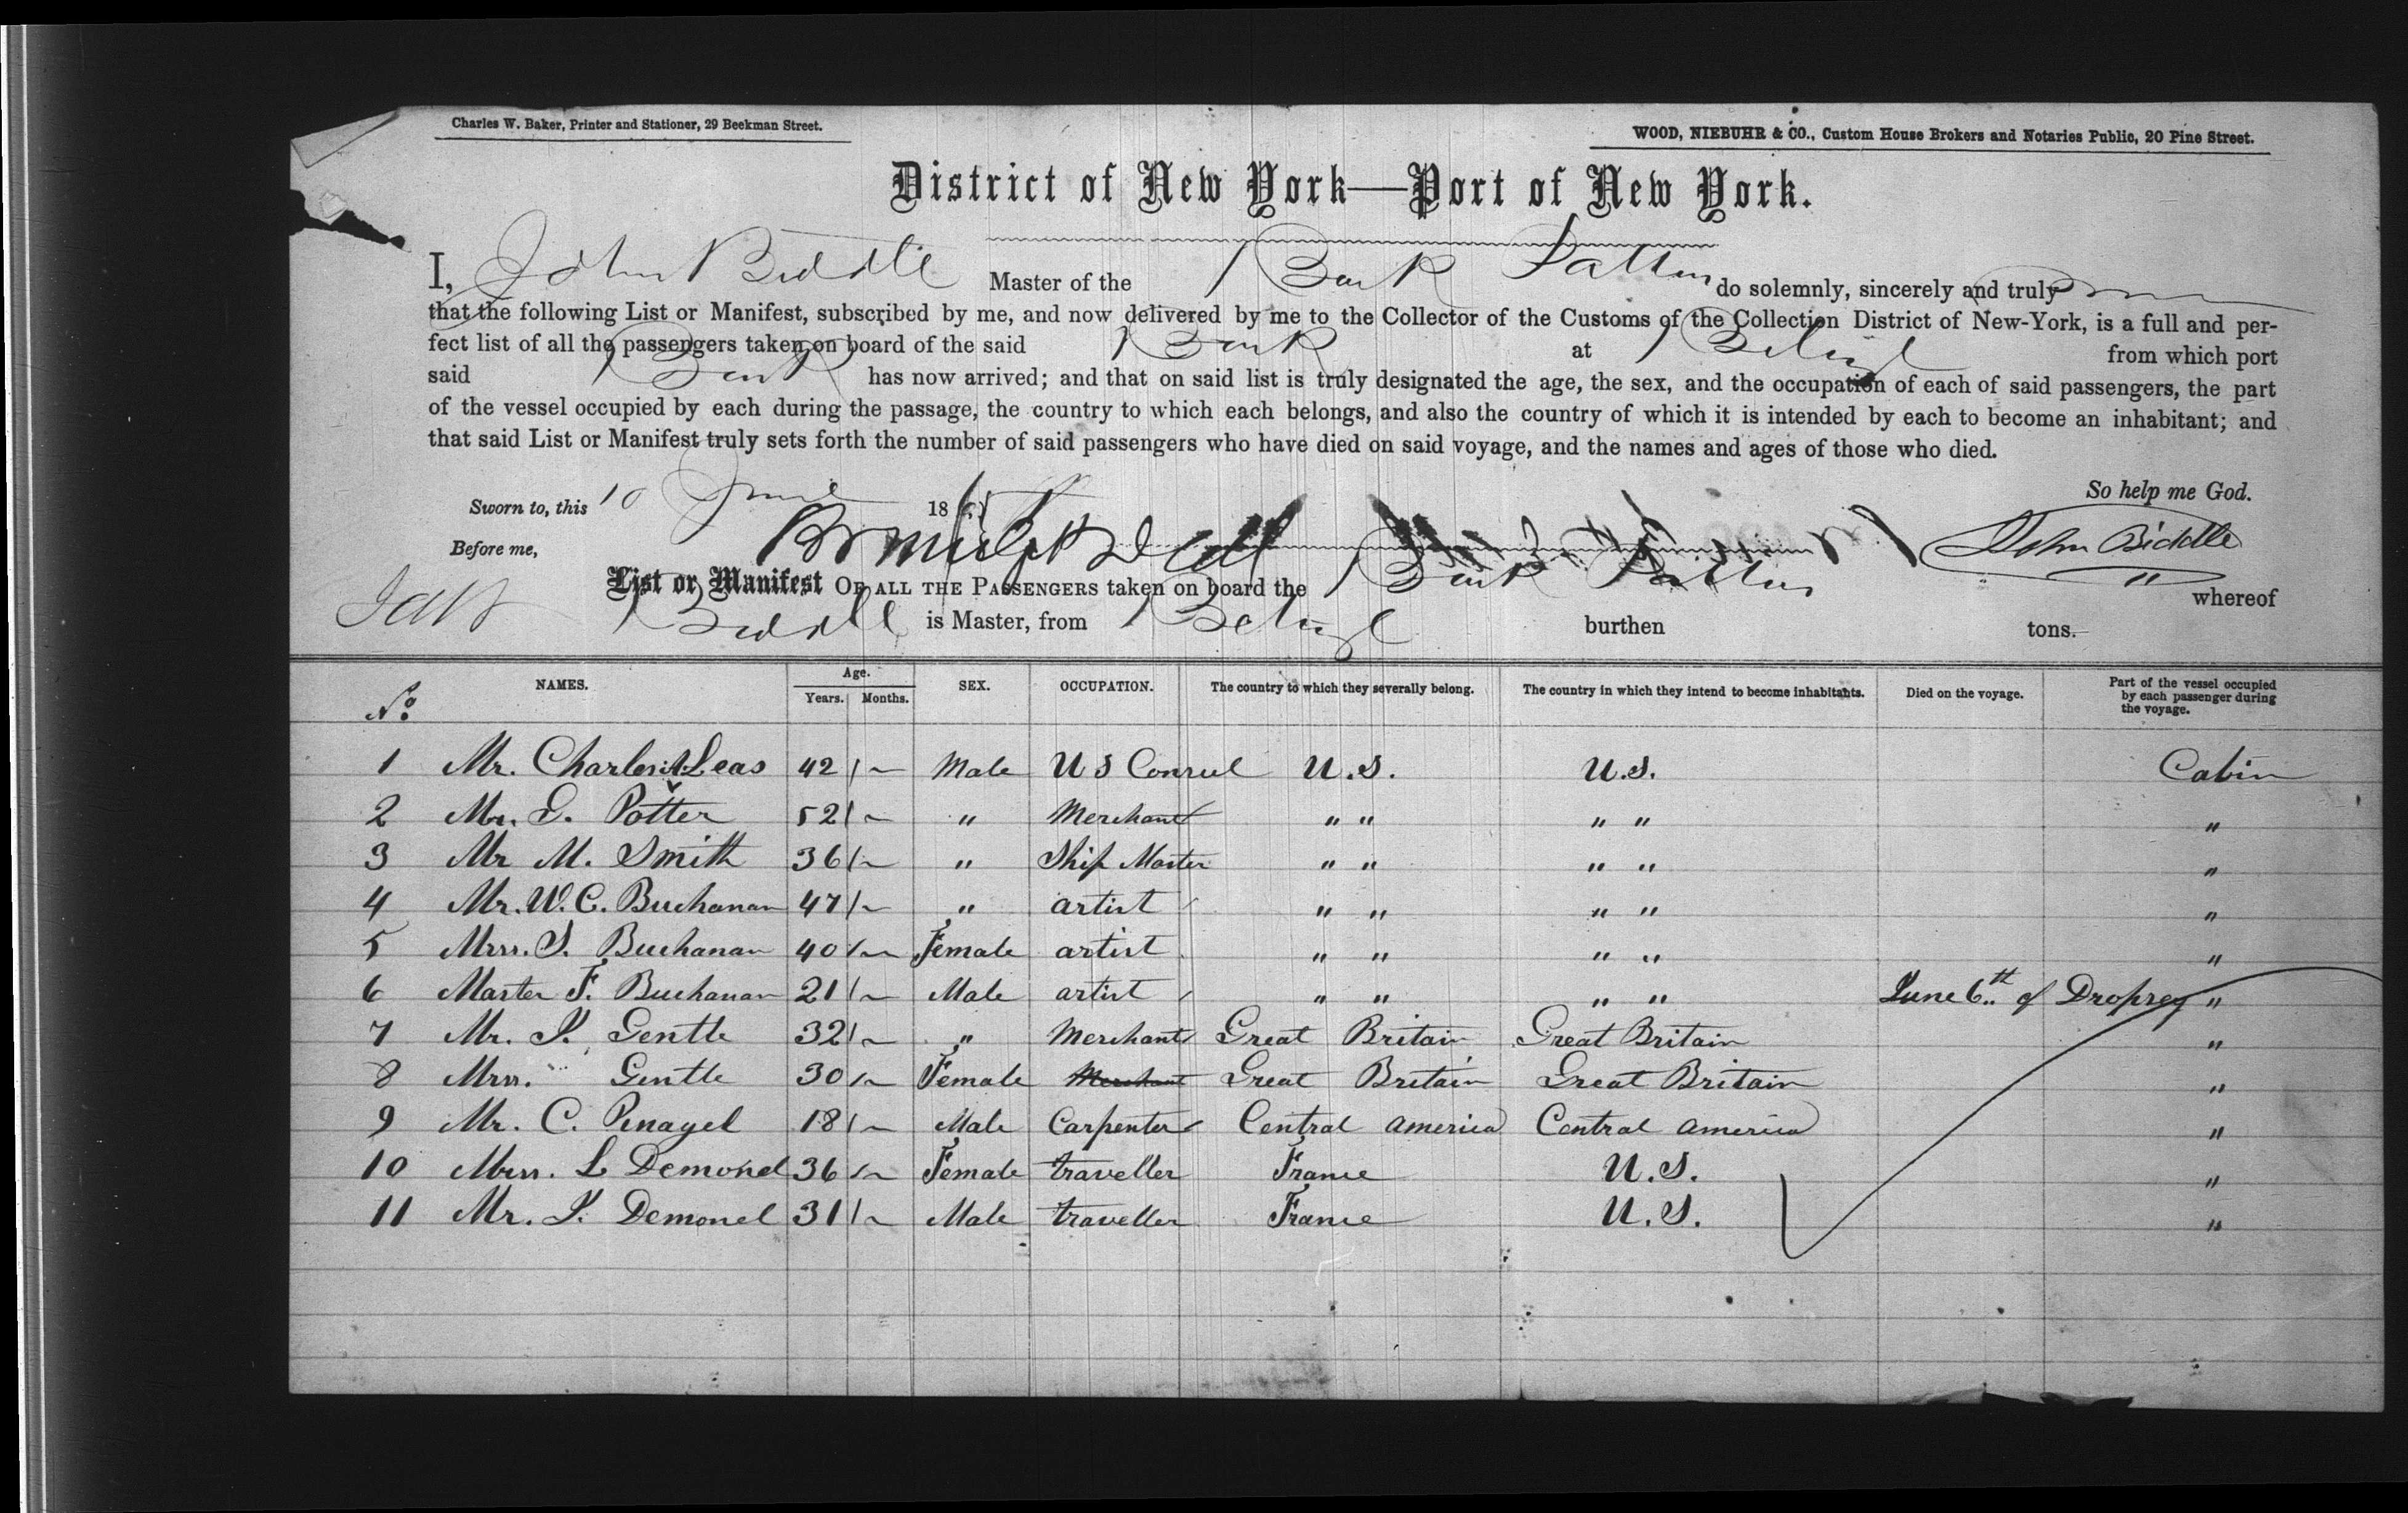 Charles W. Baker, Printer and Stationer, 29 Beekman Street.
WOOD, NIEBUHR & CO., Custom House Brokers and Notaries Public, 20 Pine Street.
District of New York—Port of New York.
I, John Biddle Master of the Bark do solemnly, sincerely and truly
that the following List or Manifest, subscribed by me, and now delivered by me to the Collector of the Customs of the Collection District of New-York, is a full and per-
fect list of all the passengers taken on board of the said Bark at Belize from which port
said Bark has now arrived; and that on said list is truly designated the age, the sex, and the occupation of each of said passengers, the part
of the vessel occupied by each during the passage, the country to which each belongs, and also the country of which it is intended by each to become an inhabitant; and
that said List or Manifest truly sets forth the number of said passengers who have died on said voyage, and the names and ages of those who died.
So help me God.
Sworn to, this 10 June 186
Before me,
John Biddle
List or Manifest OF ALL THE PASSENGERS taken on board the Bark whereof
Biddle is Master, from Belize burthen tons.
No. NAMES. Age. Years. Months. SEX. OCCUPATION. The country to which they severally belong. The country in which they intend to become inhabitants. Died on the voyage. Part of the vessel occupied by each passenger during the voyage.
1 Mr. Charles A. Leas 42 ~ Male U S Consul U.S. U.S. Cabin
2 Mr. E. Potter 52 ~ " Merchant " " " " "
3 Mr M. Smith 36 ~ " Ship Master " " " " "
4 Mr. W. C. Buchanan 47 ~ " artist " " " " "
5 Mrs. S. Buchanan 40 ~ Female artist " " " " "
6 Master F. Buchanan 21 ~ Male artist " " " " June 6th of Dropsey "
7 Mr. J. Gentle 32 ~ " Merchant Great Britain Great Britain "
8 Mrs. " Gentle 30 ~ Female Merchant Great Britain Great Britain "
9 Mr. C. Penagel 18 ~ Male Carpenter Central America Central America "
10 Mrs. L Demond 36 ~ Female traveller France U.S. "
11 Mr. J. Demond 31 ~ Male traveller France U.S. "